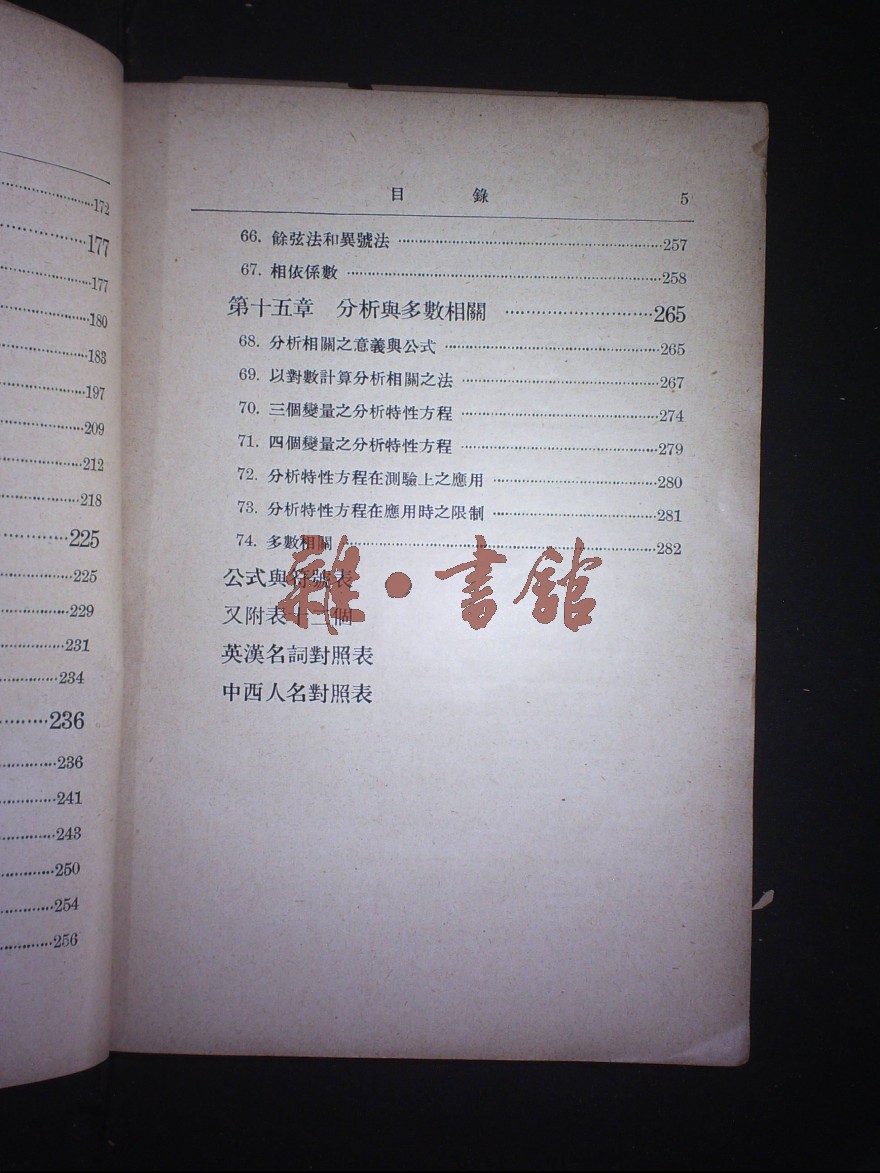 172
177
177
180
183
197
209
212
218
225
225
229
231
234
236
236
241
243
250
254
256
目 錄 5
66. 餘弦法和異號法 257
67. 相依係數 258
第十五章 分析與多數相關 265
68. 分析相關之意義與公式 265
69. 以對數計算分析相關之法 267
70. 三個變量之分析特性方程 274
71. 四個變量之分析特性方程 279
72. 分析特性方程在測驗上之應用 280
73. 分析特性方程在應用時之限制 281
74. 多數相關 282
公式與符號表
又附表十二個
英漢名詞對照表
中西人名對照表
雜·書館